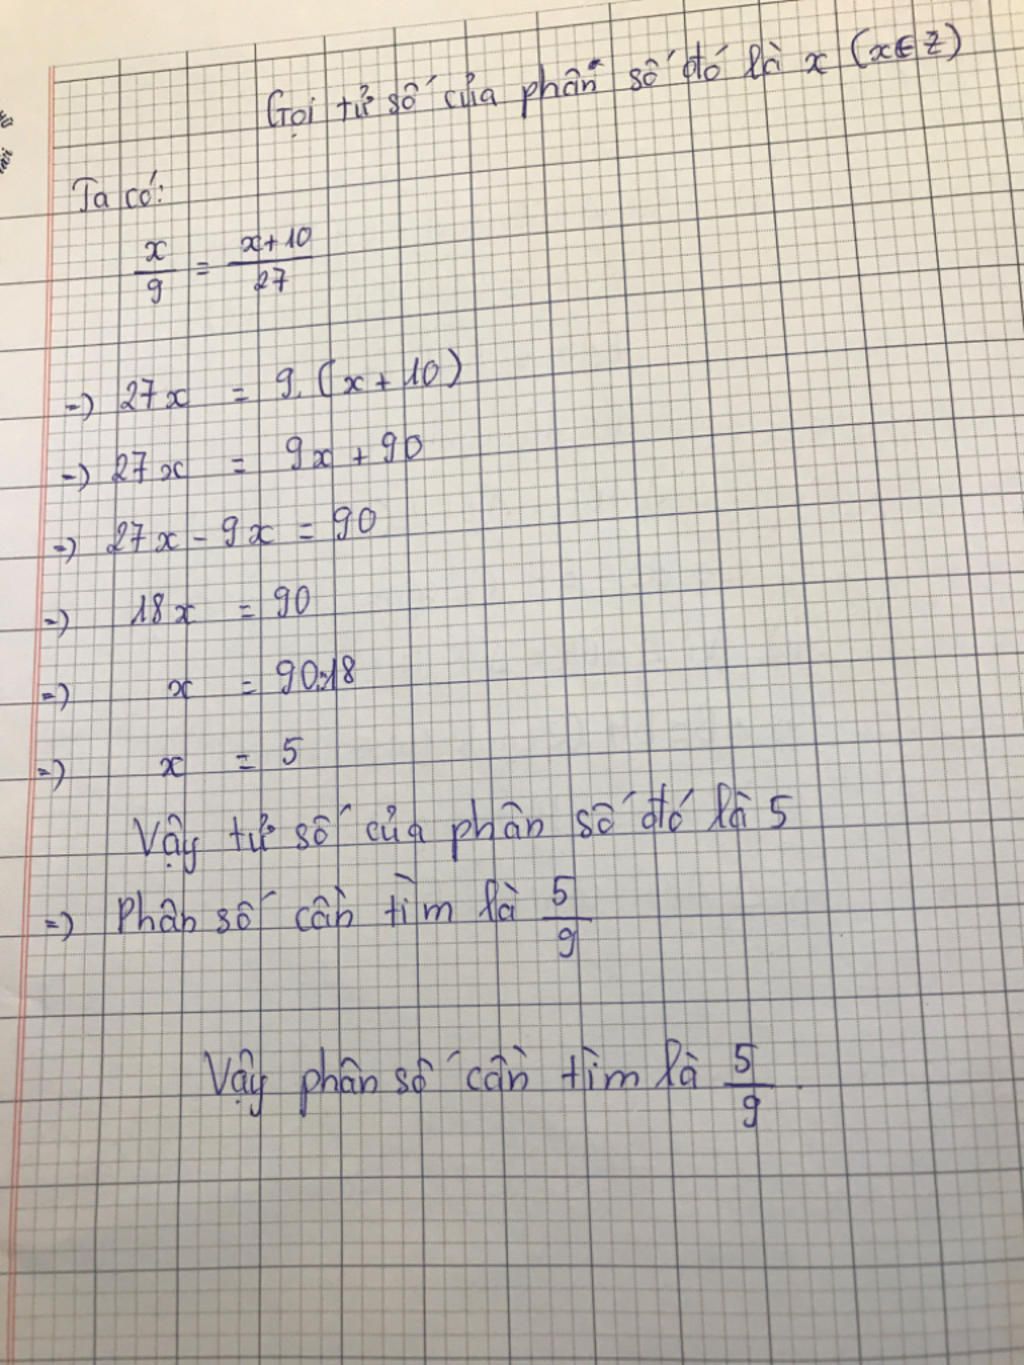 Gọi tử số của phân số đó là x (x∈Z)
Ta có:
x/9 = x+10/27
=) 27x = 9.(x+10)
=) 27x = 9x+90
=) 27x-9x=90
=) 18x = 90
=) x = 90:18
=) x = 5
Vậy tử số của phân số đó là 5
=) Phân số cần tìm là 5/9
Vậy phân số cần tìm là 5/9